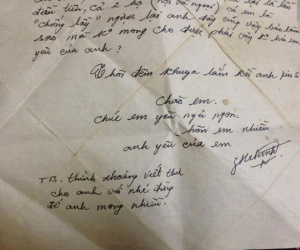 đầu tiên, cả 2 họ (nội với ngoại) cả em là
"chồng lấy vợ người lại anh đây cũng vậy
sao mà k mong cho được phải vậy k hả em
yêu của anh?
Thôi đêm khuya lắm rồi anh
Chào em.
Chúc em yêu ngủ ngon.
hôn em nhiều
anh yêu của em
TB. thỉnh thoảng viết thư
cho anh với nhé đừng
để anh mong nhiều.